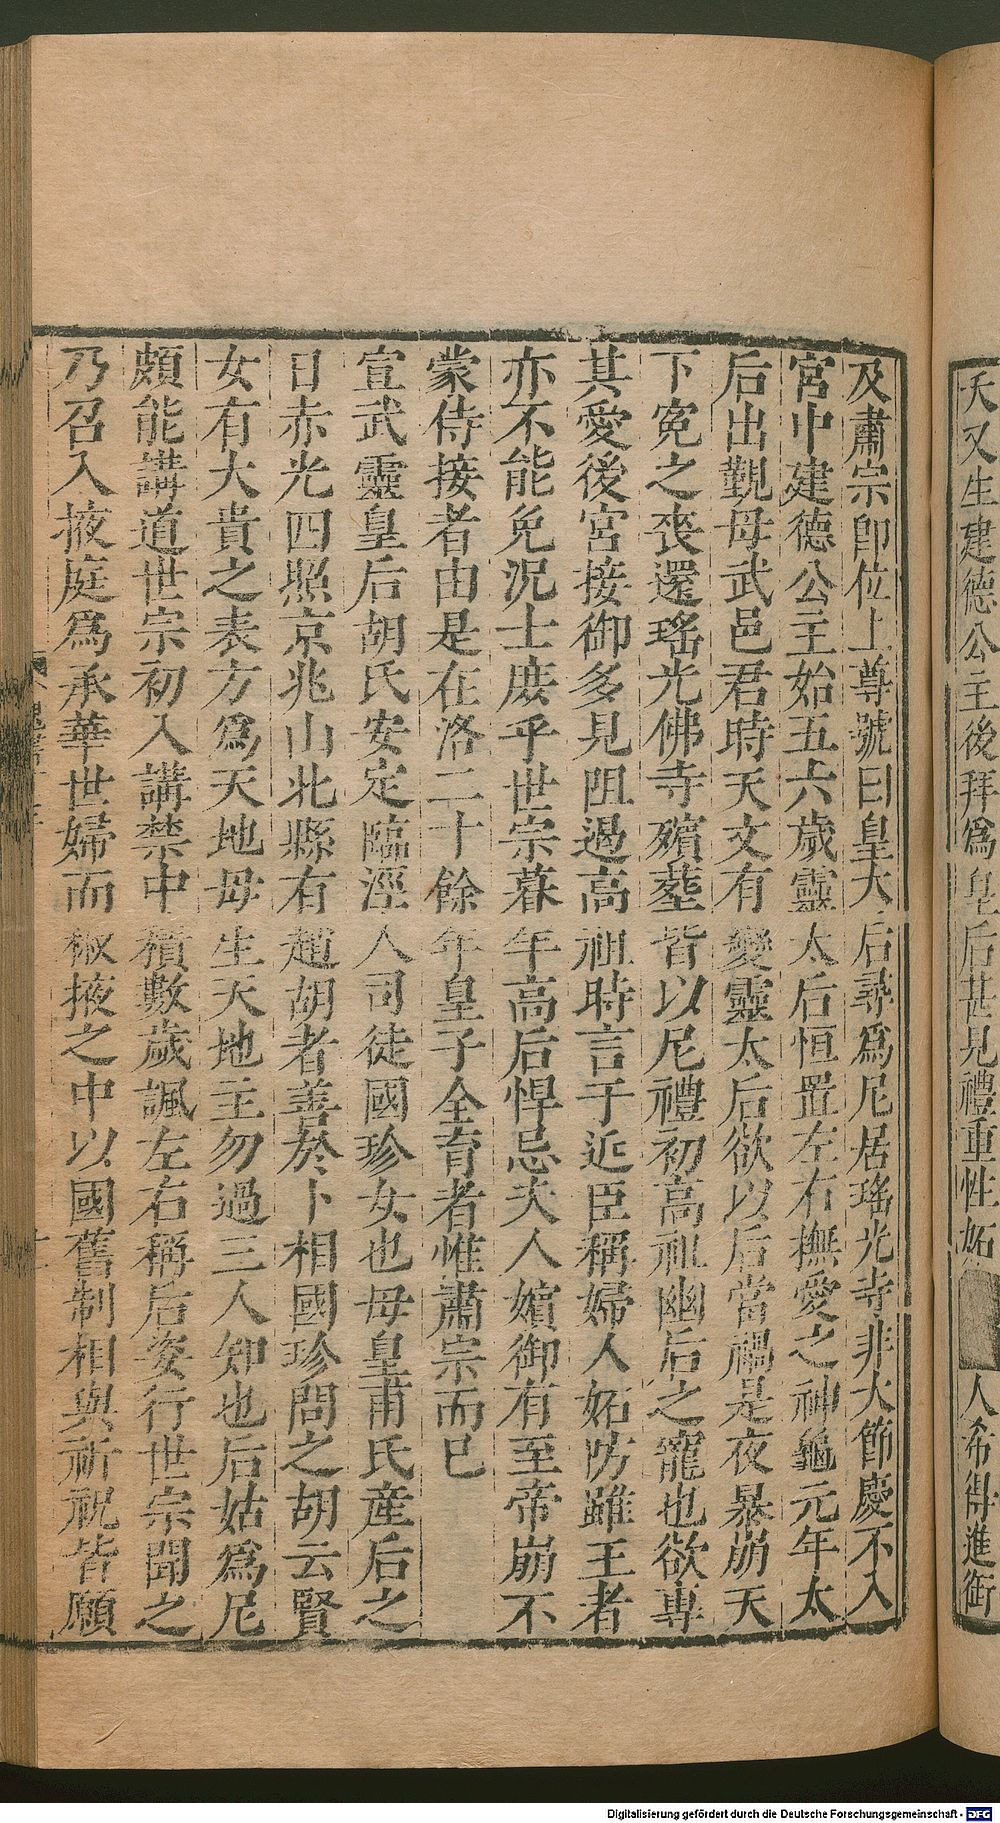 天又生建德公主後拜爲皇后甚見禮重性妬
人希得進御
及肅宗即位上尊號曰皇太后尋爲尼居瑤光寺非大節慶不入
宮中建德公主始五六歲靈太后恒置左右撫愛之神龜元年太
后出覲母武邑君時天文有變靈太后欲以后當禍是夜暴崩天
下寃之喪還瑤光佛寺殯塟皆以尼禮初高祖幽后之寵也欲專
其愛後宮接御多見阻遏高祖時言于近臣稱婦人妬防雖王者
亦不能免況士庶乎世宗暮年高后悍忌夫人嬪御有至帝崩不
蒙侍接者由是在洛二十餘年皇子全育者惟肅宗而已
宣武靈皇后胡氏安定臨涇人司徒國珍女也母皇甫氏産后之
日赤光四照京兆山北縣有趙胡者善於卜相國珍問之胡云賢
女有大貴之表方爲天地母生天地主勿過三人知也后姑爲尼
頗能講道世宗初入講禁中積數歲諷左右稱后姿行世宗聞之
乃召入掖庭爲承華世婦而椒掖之中以國舊制相與祈祝皆願
Digitalisierung gefördert durch die Deutsche Forschungsgemeinschaft - DFG